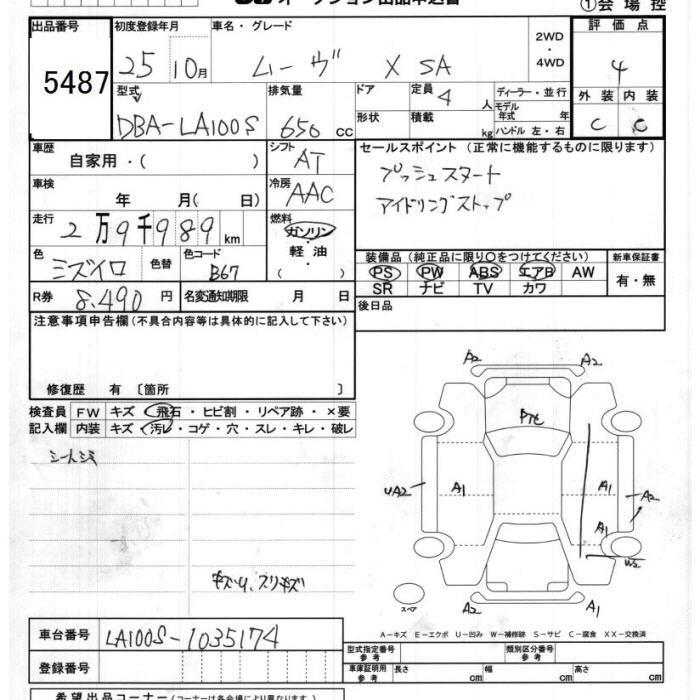 オークション出品申込書
①会場控
出品番号 初度登録年月 車名・グレード 2WD・4WD 評価点
5487 25 10月 ムーヴ X SA 4
型式 排気量 ドア 定員 4人 ディーラー・並行 外装 内装
DBA-LA100S 650cc 形状 積載 kg モデル年式 年 ハンドル 左・右 C C
車歴 自家用・( ) シフト AT セールスポイント (正常に機能するものに限ります)
車検 年 月(日) 冷房 AAC プッシュスタート
アイドリングストップ
走行 2万9千989km 燃料 ガソリン・軽油( )
色 ミズイロ 色替 色コード B67 装備品(純正品に限り○をつけてください) 新車保証書
PS PW ABS エアB AW 有・無
SR ナビ TV カワ
R券 8.490円 名変通知期限 月 日 後日品
注意事項申告欄(不具合内容等は具体的に記入して下さい)
修復歴 有 〔箇所 〕
検査員 FW キズ・飛石・ヒビ割・リペア跡・×要
記入欄 内装 キズ・汚レ・コゲ・穴・スレ・キレ・破レ
シートシミ
A2 A2
UA2 A1 A1 A2
A1
W2
キズ小、スリキズ
スペア A2 A1
A-キズ E-エクボ U-凹み W-補修跡 S-サビ C-腐食 XX-交換済
車台番号 LA100S-1035174
登録番号
型式指定番号 参考 類別区分番号 参考
車庫証明用 参考 長さ cm 幅 cm 高さ cm
希望出品コーナー(コーナー名は各会場により異なります)